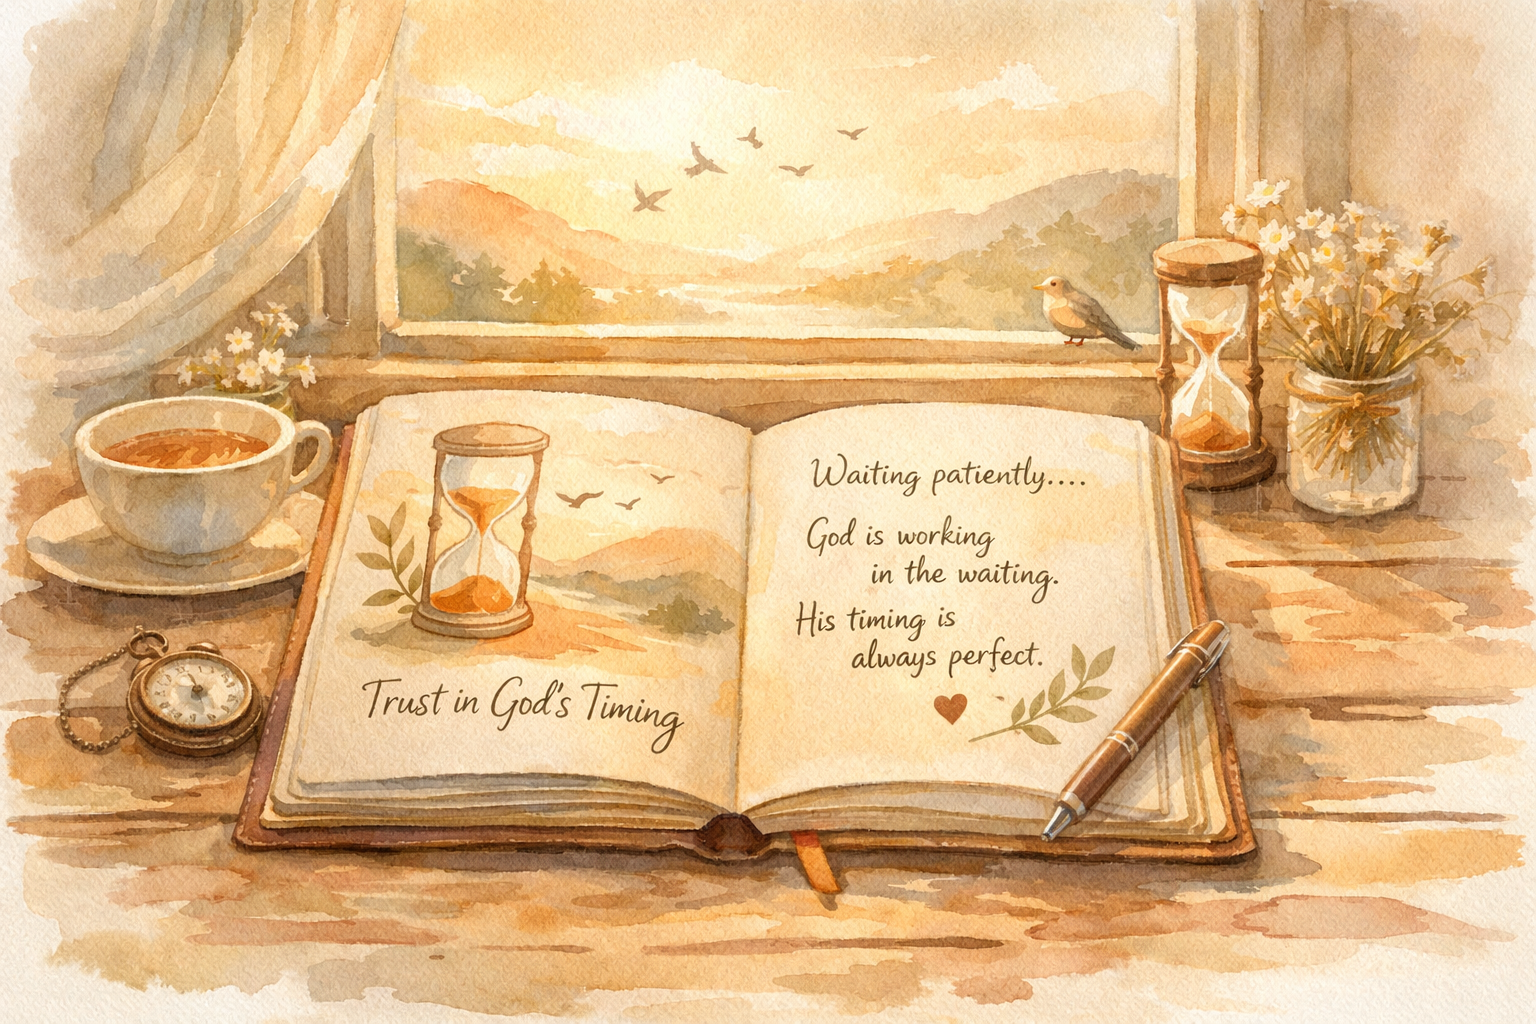 Trust in God's Timing
Waiting patiently....
God is working
in the waiting.
His timing is
always perfect.